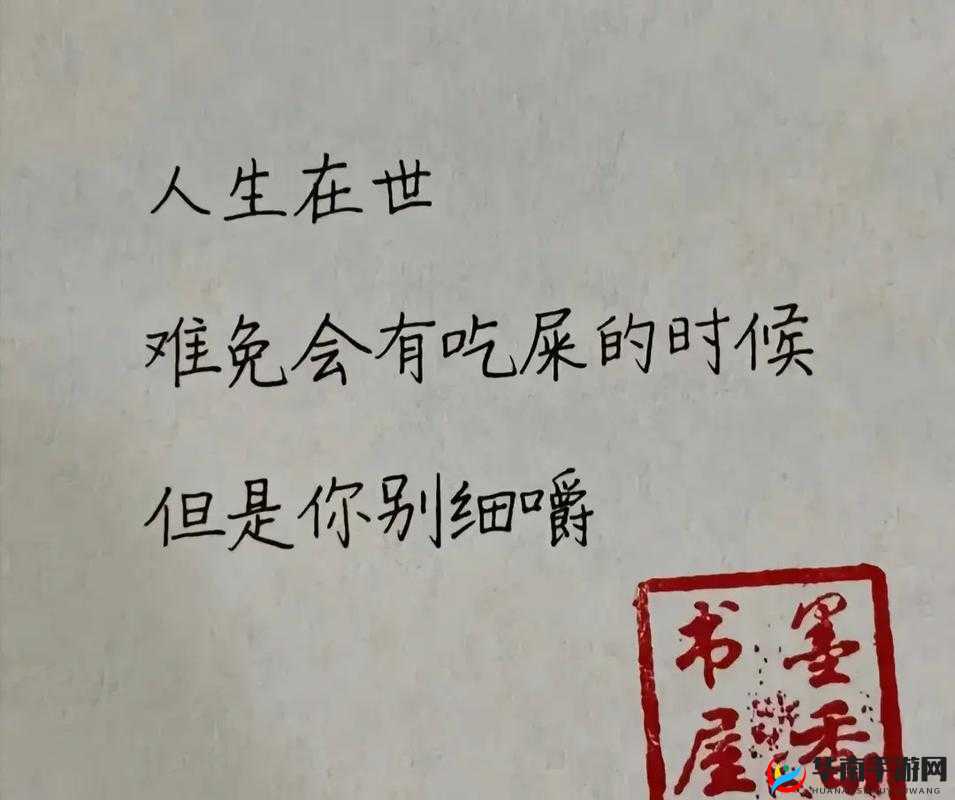 人生在世
难免会有吃屎的时候
但是你别细嚼
墨香
书屋
华南手游网
HUANANSHOUYOUWANG